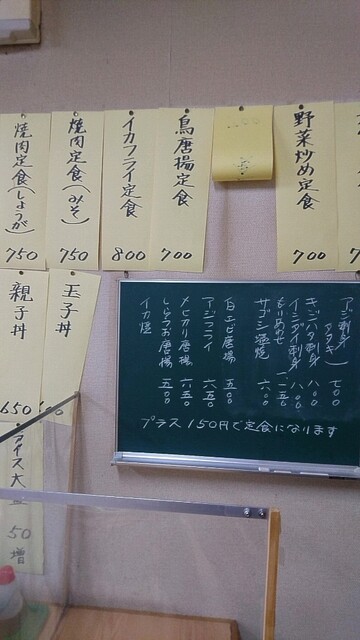 野菜炒め定食
700
鳥唐揚定食
700
イカフライ定食
800
焼肉定食(みそ)
750
焼肉定食(しょうが)
750
玉子丼
親子丼
650
アイス大
50
増
アジ刺身
タタキ)
七〇〇
キジハタ刺身
八〇〇
イシダイ刺身
八〇〇
もりあわせ
サゴシ塩焼
六〇〇
白エビ唐揚
五〇〇
アジフライ
六五〇
メヒカリ唐揚
六五〇
しらうお唐揚
五五〇
イカ煙
五〇〇
プラス150円で定食になります